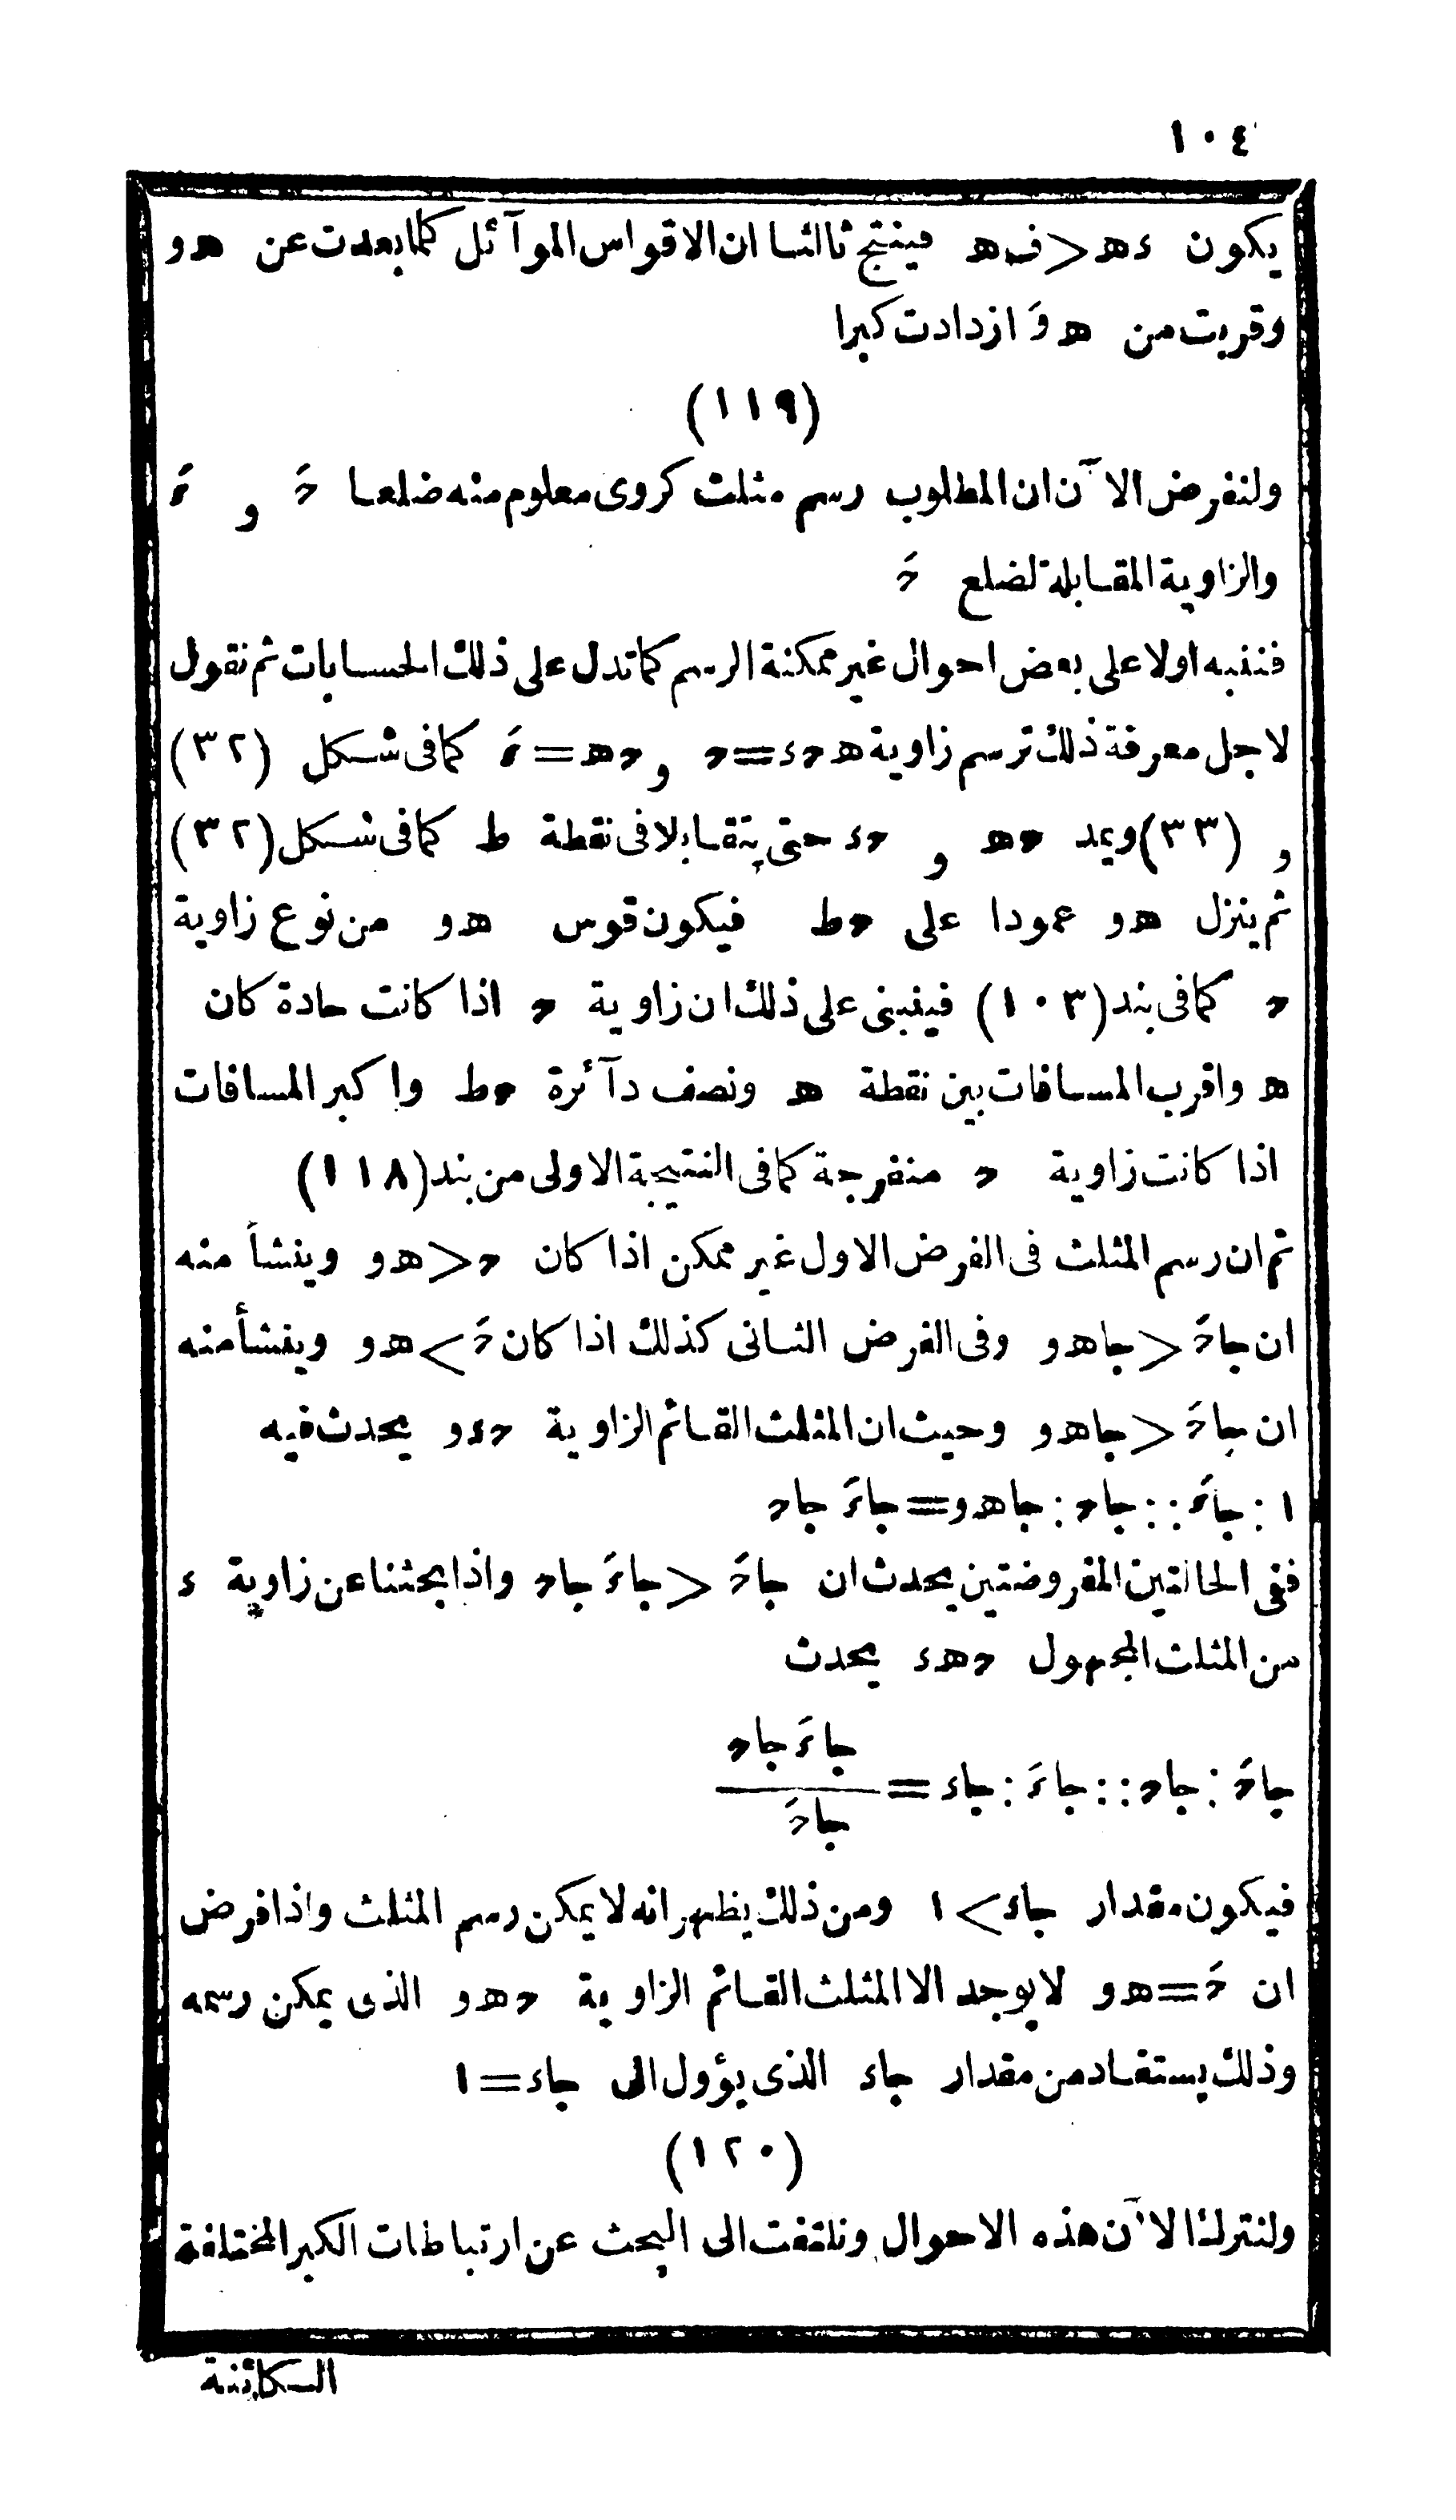 ١٠٤
يكون ءه < فه فينتج ثالثا ان الاقواس الموآئل كلما بعدت عن هو
وقربت من هوَ ازدادت كبرا
(١١٩)
ولنفرض الآن ان المطلوب رسم مثلث كروى معلوم منه ضلعا حَ و ءَ
والزاوية المقابلة لضلع حَ
فننبه اولا على بعض احوال غير ممكنة الرسم كما تدل على ذلك الحسابات ثم نقول
لاجل معرفة ذلك ترسم زاوية هحء = ح و حه = ءَ كما فى شكل (٣٢)
و (٣٣) ويمد حه و حء حتى يتقابلا فى نقطة ط كما فى شكل (٣٢)
ثم ينزل هو عمودا على حط فيكون قوس هو من نوع زاوية
ح كما فى بند (١٠٣) فينبنى على ذلك ان زاوية ح اذا كانت حادة كان
هو اقرب المسافات بين نقطة ه ونصف دآئرة حط واكبر المسافات
اذا كانت زاوية ح منفرجة كما فى النتيجة الاولى من بند (١١٨)
ثم ان رسم المثلث فى الفرض الاول غير ممكن اذا كان ح < هو وينشأ منه
ان جاحَ < جاهو وفى الفرض الثانى كذلك اذا كان حَ > هو وينشأ منه
ان جاحَ < جاهو وحيث ان المثلث القائم الزاوية حءو يحدث فيه
١ : جاءَ :: جاح : جاهو = جاءَ جاح
ففى الحالتين المفروضتين يحدث ان جاحَ < جاءَ جاح واذا بحثنا عن زاوية ء
من المثلث المجهول حهء يحدث
جاحَ : جاح :: جاءَ : جاء = جاءَ جاح / جاحَ
فيكون مقدار جاء > ١ ومن ذلك يظهر انه لا يمكن رسم المثلث واذا فرض
ان حَ = هو لا يوجد الا المثلث القائم الزاوية حهو الذى يمكن رسمه
وذلك يستفاد من مقدار جاء الذى يؤول الى جاء = ١
(١٢٠)
ولنترك الآن هذه الاحوال ونلتفت الى البحث عن ارتباطات الكبر المختلفة
الكائنة